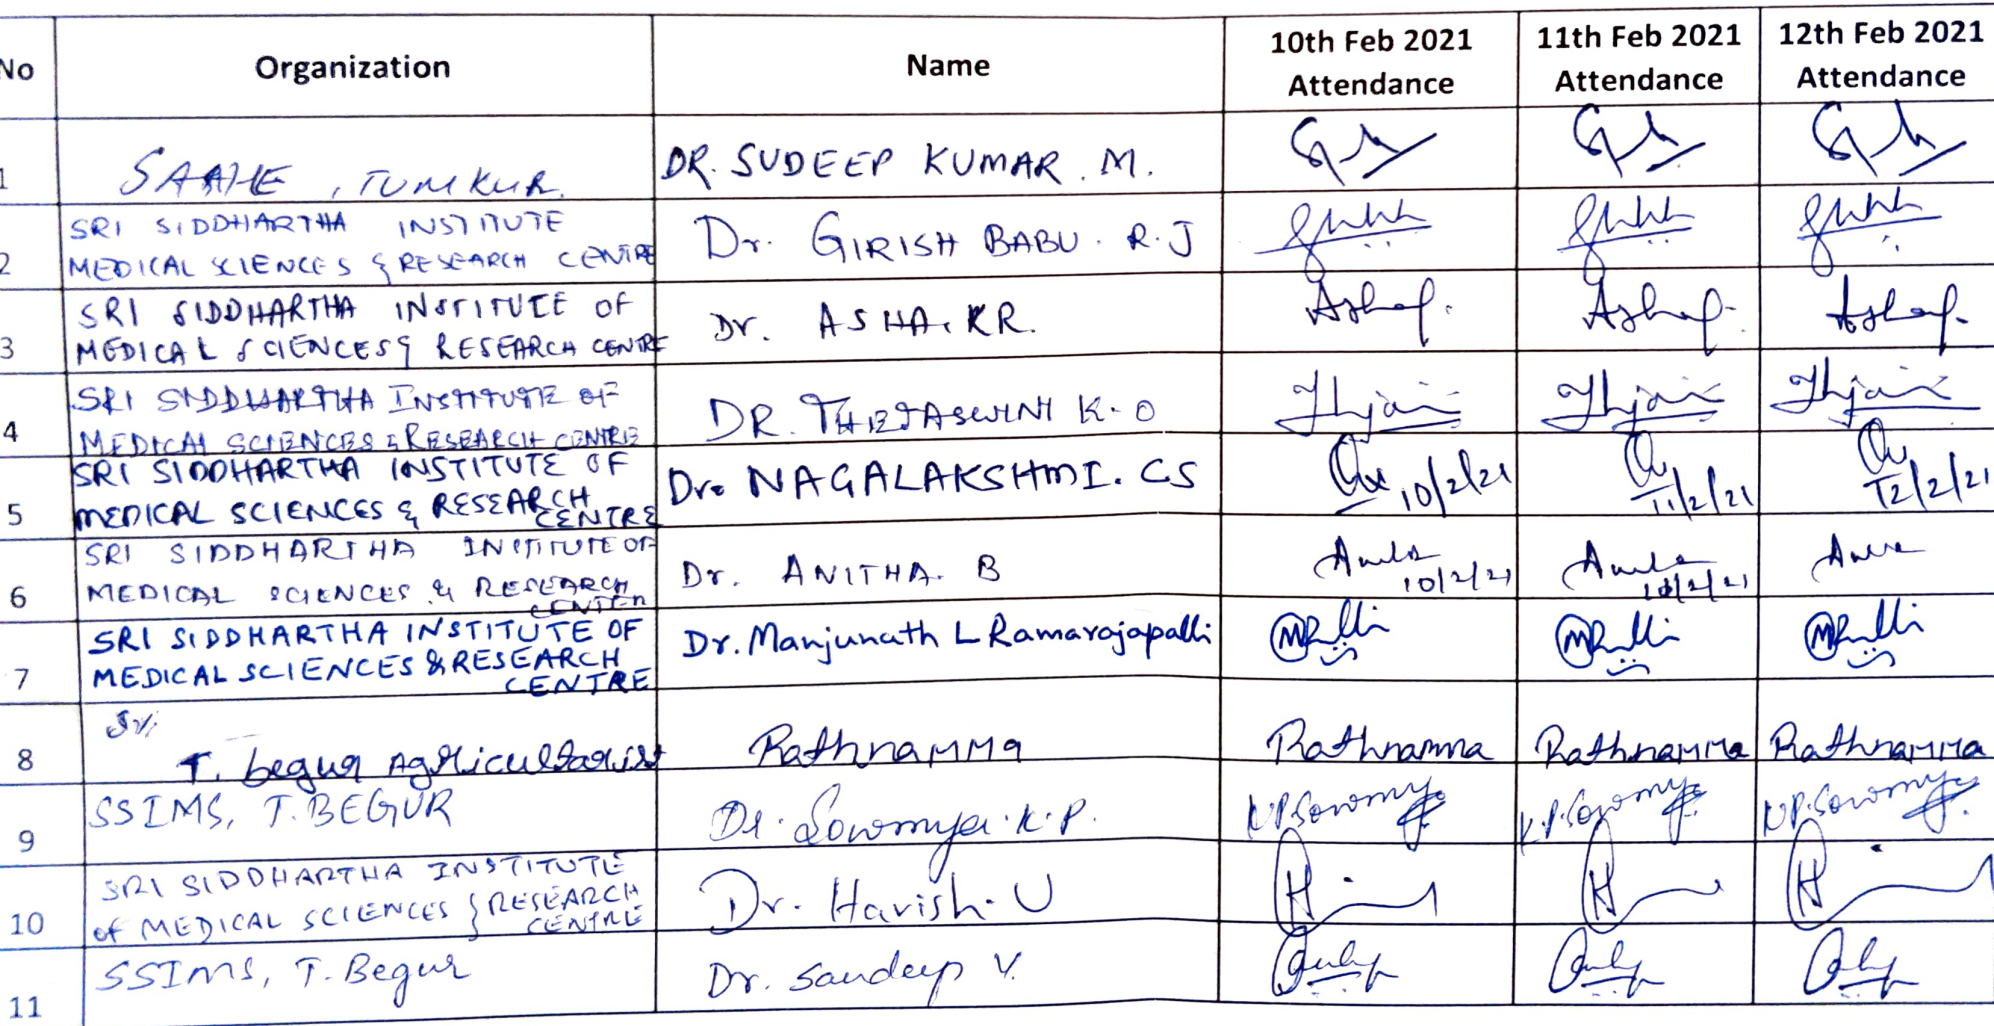 No Organization Name 10th Feb 2021 Attendance 11th Feb 2021 Attendance 12th Feb 2021 Attendance
1 SAAHE, TUMKUR. DR. SUDEEP KUMAR. M.
SRI SIDDHARTHA INSTITUTE
2 MEDICAL SCIENCES & RESEARCH CENTRE Dr. GIRISH BABU. R.J
SRI SIDDHARTHA INSTITUTE OF
3 MEDICAL SCIENCES & RESEARCH CENTRE Dr. ASHA.KR.
SRI SIDDHARTHA INSTITUTE OF
4 MEDICAL SCIENCES & RESEARCH CENTRE DR. THEJASWINI K.O
SRI SIDDHARTHA INSTITUTE OF
5 MEDICAL SCIENCES & RESEARCH Dr. NAGALAKSHMI. CS 10/2/21 11/2/21 12/2/21
CENTRE
SRI SIDDHARTHA INSTITUTE OF
6 MEDICAL SCIENCES & RESEARCH Dr. ANITHA. B 10/2/21
CENTER
SRI SIDDHARTHA INSTITUTE OF
7 MEDICAL SCIENCES & RESEARCH Dr. Manjunath L Ramarajapalli
CENTRE
8 T. begur Agriculturist Rathnamma Rathnamma Rathnamma Rathnamma
9 SSIMS, T. BEGUR Dr. Sowmya. K.P. K.P.Sowmya K.P.Sowmya K.P.Sowmya
SRI SIDDHARTHA INSTITUTE
10 of MEDICAL SCIENCES & RESEARCH Dr. Harish. U
CENTRE
11 SSIMS, T. Begur Dr. Sandeep V.